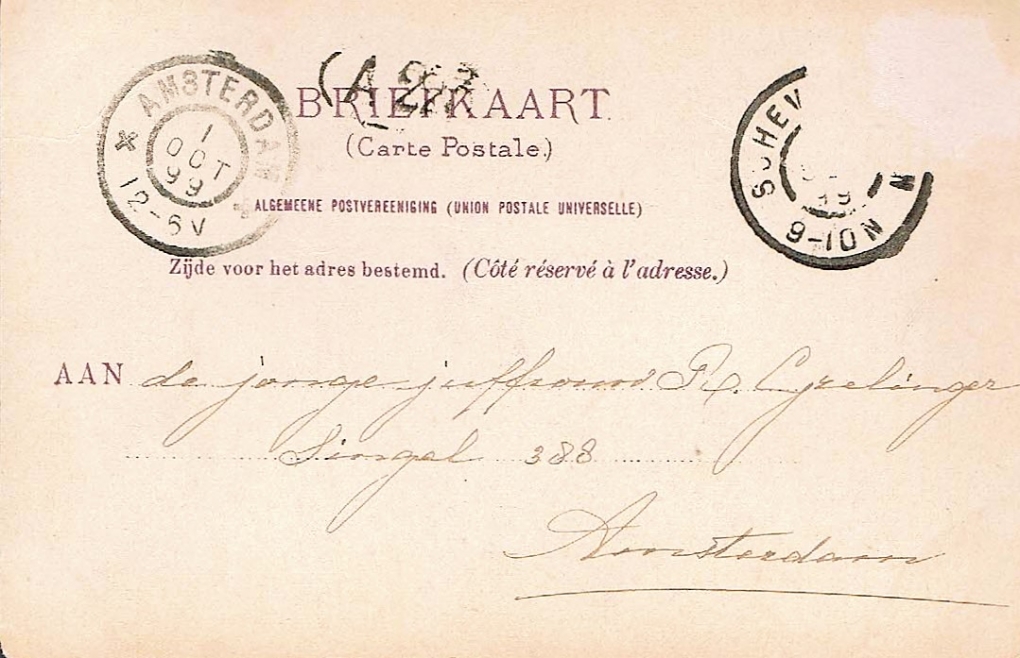 AMSTERDAM
1
OCT
99
12-6V
(A 2
BRIEFKAART
(Carte Postale.)
ALGEMEENE POSTVEREENIGING (UNION POSTALE UNIVERSELLE)
SCHEV N
99
9-10N
Zijde voor het adres bestemd. (Côté réservé à l'adresse.)
AAN de jonge juffrouw R.
Singel 388
Amsterdam